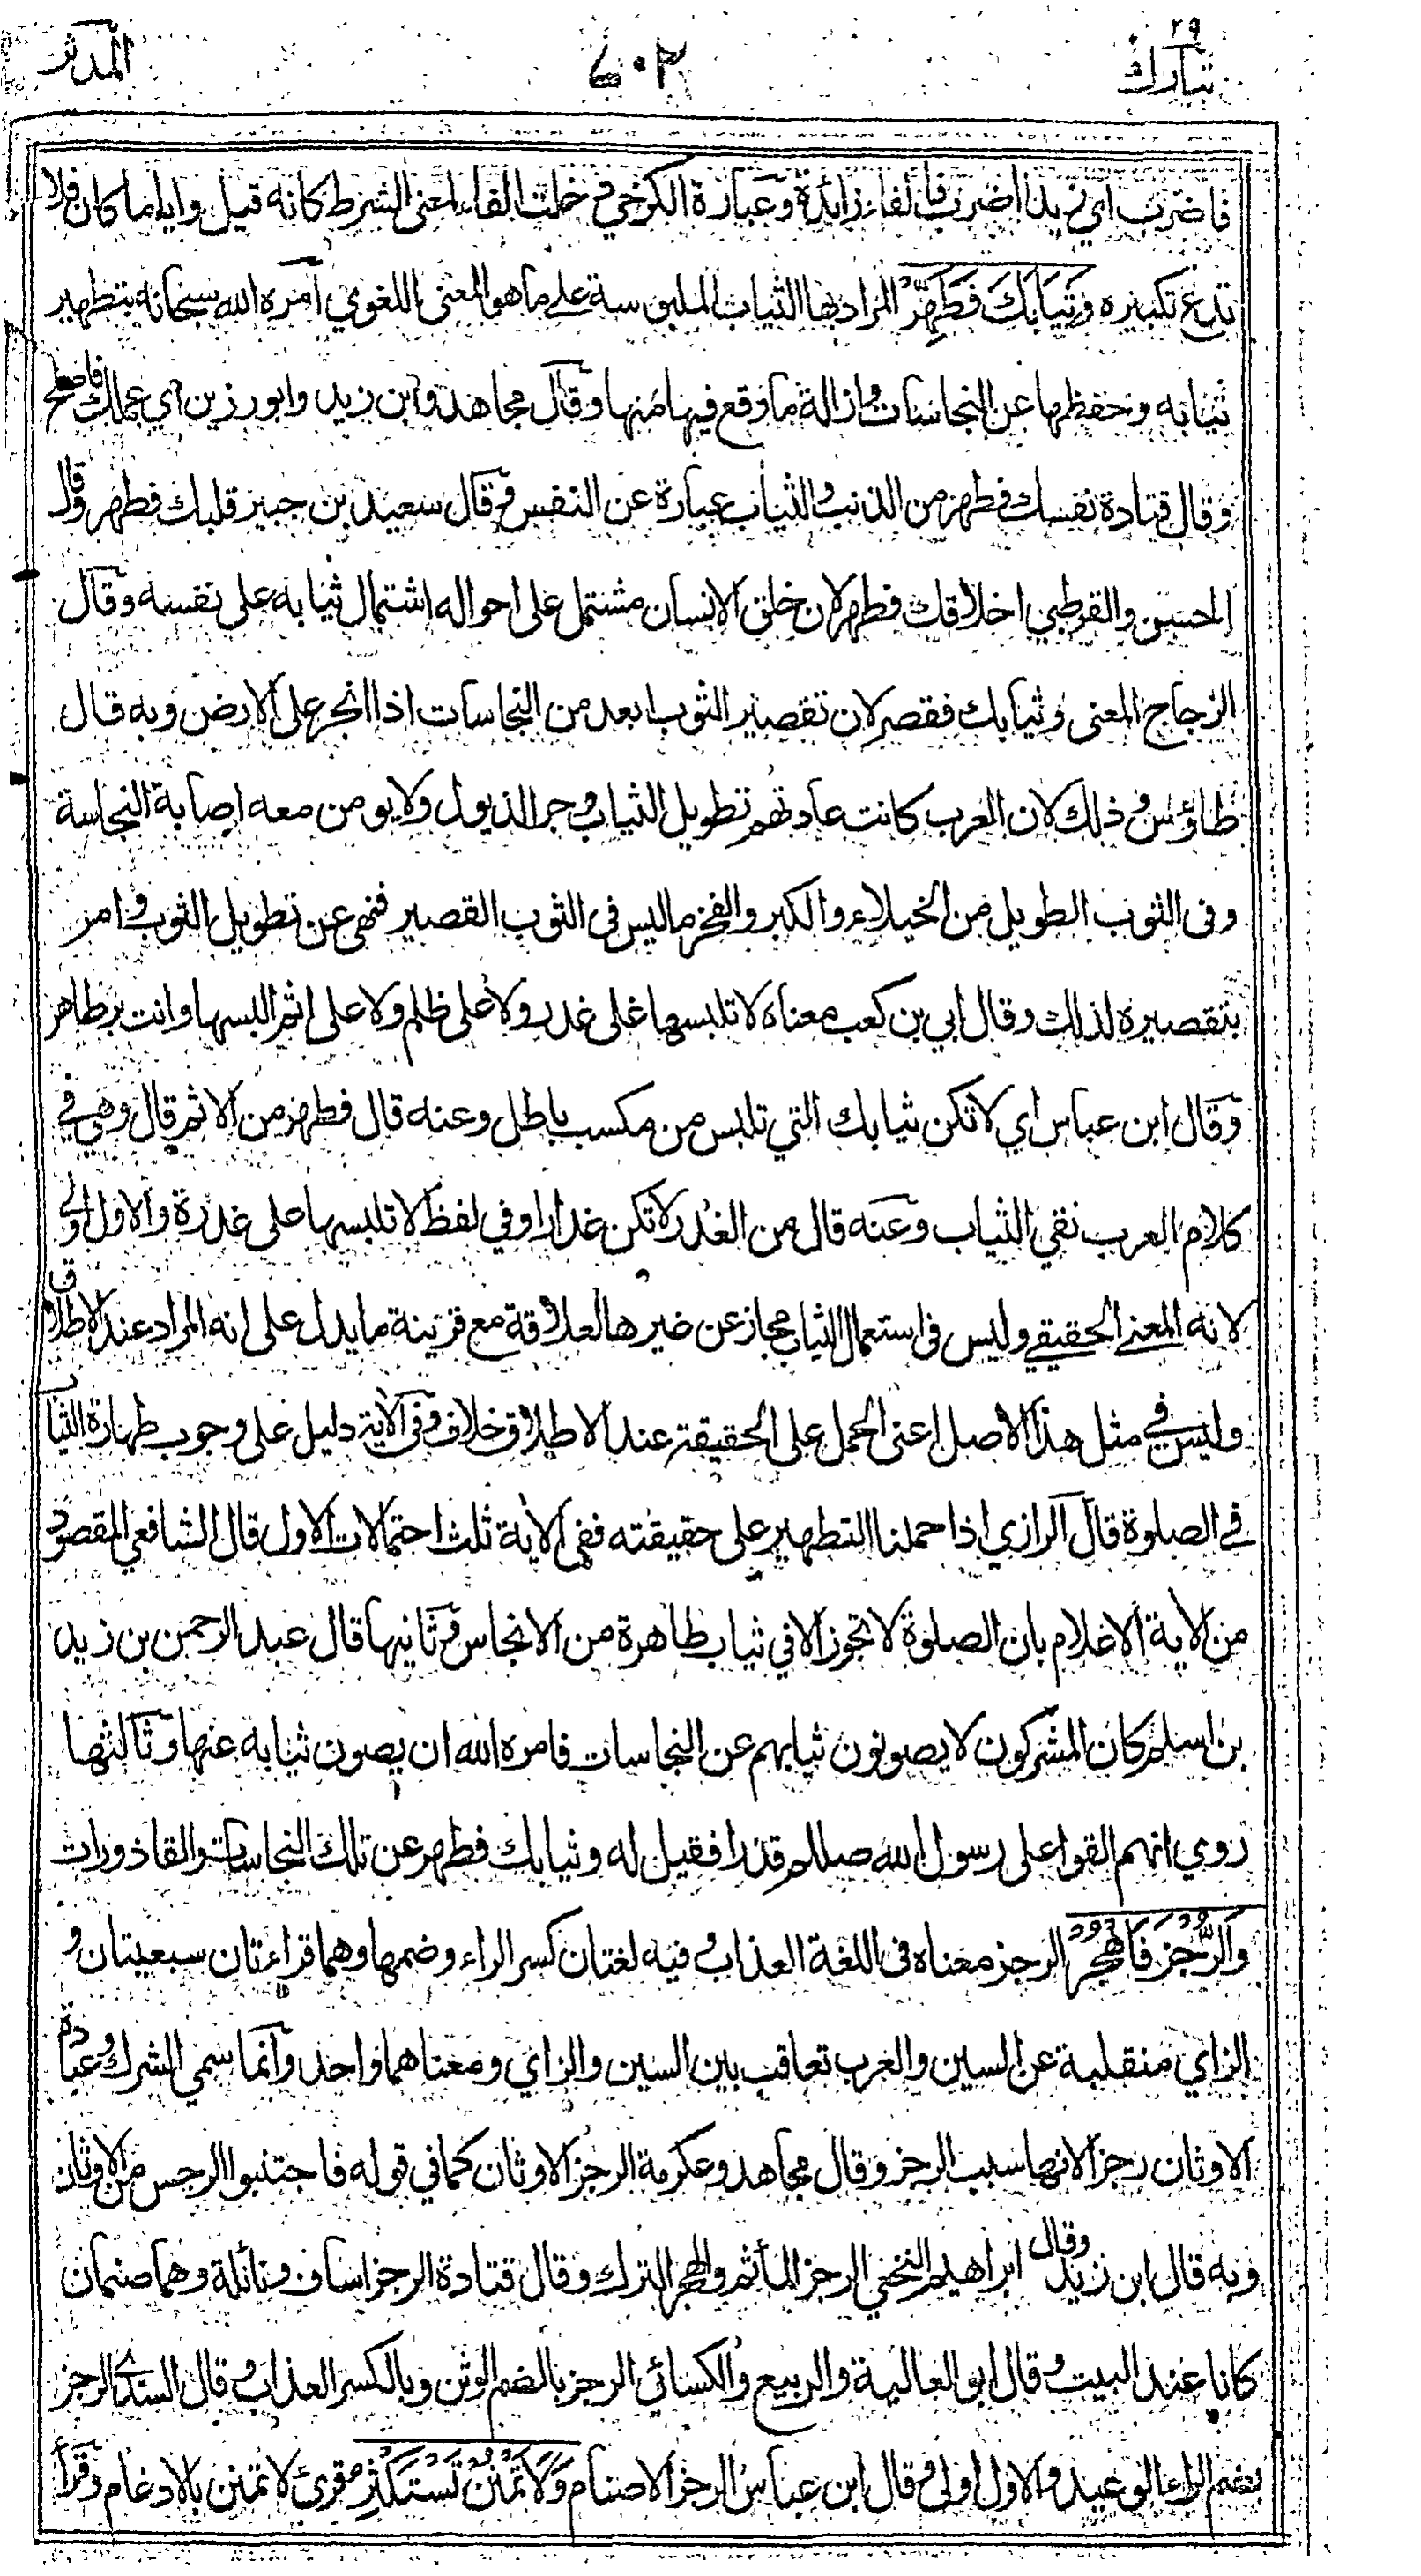 تبارك ٢٩
٤٠٢
المدثر
فاضرب اي زيدا اضرب فالفاء زائدة وعبارة الكرخي دخلت الفاء لمعنى الشرط كانه قيل وايا ما كان فلا
تدع تكبيره وَثِيَابَكَ فَطَهِّرْ المراد بها الثياب الملبوسة على ما هو المعنى اللغوي امره الله سبحانه بتطهير
ثيابه وحفظها عن النجاسات وازالة ما وقع فيها منها وقال مجاهد وابن زيد وابو رزين اي عملك فاصلح
وقال قتادة نفسك فطهر من الذنب والثياب عبارة عن النفس وقال سعيد بن جبير قلبك فطهر وقال
الحسن والقرطبي اخلاقك فطهر لان خلق الانسان مشتمل على احواله اشتمال ثيابه على نفسه وقال
الزجاج المعنى وثيابك فقصر لان تقصير الثوب ابعد من النجاسات اذا انجر على الارض وبه قال
طاؤس وذلك لان العرب كانت عادتهم تطويل الثياب وجر الذيول ولا يومن معه اصابة النجاسة
وفي الثوب الطويل من الخيلاء والكبر والفخر ما ليس في الثوب القصير فنهى عن تطويل الثوب وامر
بتقصيره لذلك وقال ابي بن كعب معناه لا تلبسها على غدر ولا على ظلم ولا على اثم البسها وانت بر طاهر
وقال ابن عباس اي لا تكن ثيابك التي تلبس من مكسب باطل وعنه قال فطهر من الاثم قال وهي في
كلام العرب نقي الثياب وعنه قال من الغدر لا تكن غدارا وفي لفظ لا تلبسها على غدرة والاول اولى
لانه المعنى الحقيقي وليس في استعمال الثياب مجاز عن غيرها لعلاقة مع قرينة ما يدل على انه المراد عند الاطلاق
وليس في مثل هذا الاصل اعني الحمل على الحقيقة عند الاطلاق خلاف وفي الاية دليل على وجوب طهارة الثياب
في الصلوة قال الرازي اذا حملنا التطهير على حقيقته ففي الاية ثلث احتمالات الاول قال الشافعي المقصود
من الاية الاعلام بان الصلوة لا تجوز الا في ثياب طاهرة من الانجاس وثانيها قال عبد الرحمن بن زيد
بن اسلم كان المشركون لا يصونون ثيابهم عن النجاسات فامره الله ان يصون ثيابه عنها وثالثها
روي انهم القوا على رسول الله صللم قذرا فقيل له وثيابك فطهر عن تلك النجاسات والقاذورات
وَالرُّجْزَ فَاهْجُرْ الرجز معناه في اللغة العذاب وفيه لغتان كسر الراء وضمها وهما قراءتان سبعيتان و
الزاي منقلبة عن السين والعرب تعاقب بين السين والزاي ومعناهما واحد وانما سمي الشرك وعبادة
الاوثان رجزا لانها سبب الرجز وقال مجاهد وعكرمة الرجز الاوثان كما في قوله فاجتنبوا الرجس من الاوثان
وبه قال ابن زيد وقال ابراهيم النخعي الرجز المأثم والهجر الترك وقال قتادة الرجز اساف ونائلة وهما صنمان
كانا عند البيت وقال ابو العالية والربيع والكسائي الرجز بالضم الوثن وبالكسر العذاب وقال السدي الرجز
بضم الراء الوعيد والاول اولى وقال ابن عباس الرجز الاصنام وَلَا تَمْنُنْ تَسْتَكْثِرُ قرئ لا تمنن بالادغام وقرأ